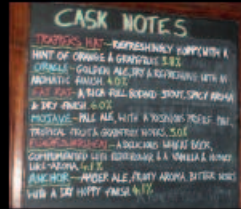 CASK NOTES
TRAPPERS HAT - REFRESHINGLY HOPPY WITH A
HINT OF ORANGE & GRAPEFRUIT 3.8%
GOLDEN ALE, DRY & REFRESHING WITH AN
AROMATIC FINISH 4.0%
FAT RAT - A RICH FULL BODIED STOUT, SPICY AROMA
& DRY FINISH. 6.0%
MOJAVE - PALE ALE, WITH A
TROPICAL FRUIT & GRAPEFRUIT NOTES.
A DELICIOUS WHEAT BEER,
COMPLIMENTED WITH & A VANILLA &
LIKE AROMA.
ANCHOR - AMBER ALE, FRUITY AROMA, BITTER NOTES
WITH A DRY HOPPY FINISH 4.1%